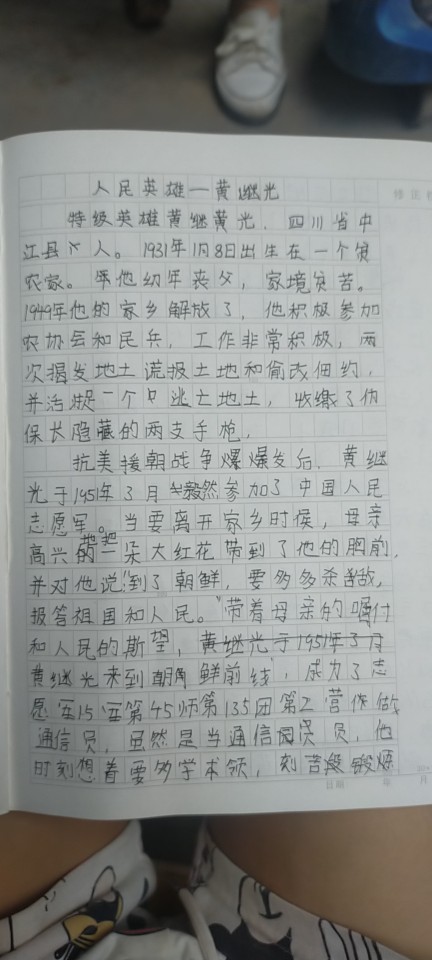 人民英雄—黄继光
特级英雄黄继黄光，四川省中
江县人。1931年1月8日出生在一个贫
农家。他幼年丧父，家境贫苦。
1949年他的家乡解放了，他积极参加
农协会和民兵，工作非常积极，两
次揭发地土谎报土地和偷改佃约，
并活捉一个逃亡地土，收缴了伪
保长隐藏的两支手枪，
抗美援朝战争爆爆发后，黄继
光于1951年3月毅然参加了中国人民
志愿军。当要离开家乡时候，母亲
高兴地把一朵大红花带到了他的胸前，
并对他说："到了朝鲜，要多多杀敌，
报答祖国和人民。"带着母亲的嘱付
和人民的斯望，黄继光于1951年3月
黄继光来到朝鲜前线，成为了志
愿军15军第45师第135团第2营做
通信员，虽然是当通信员，他
时刻想着要多学本领，刻苦锻炼
修正
日期 年 月